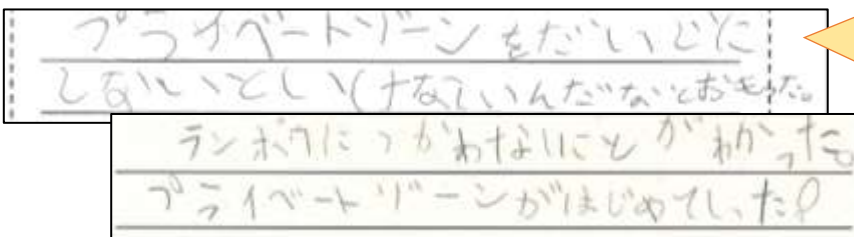 プライベートゾーンをだいじに
しないといけないんだなとおもった。
ランボウにつかわないことがわかった。
プライベートゾーンがはじめてしった。